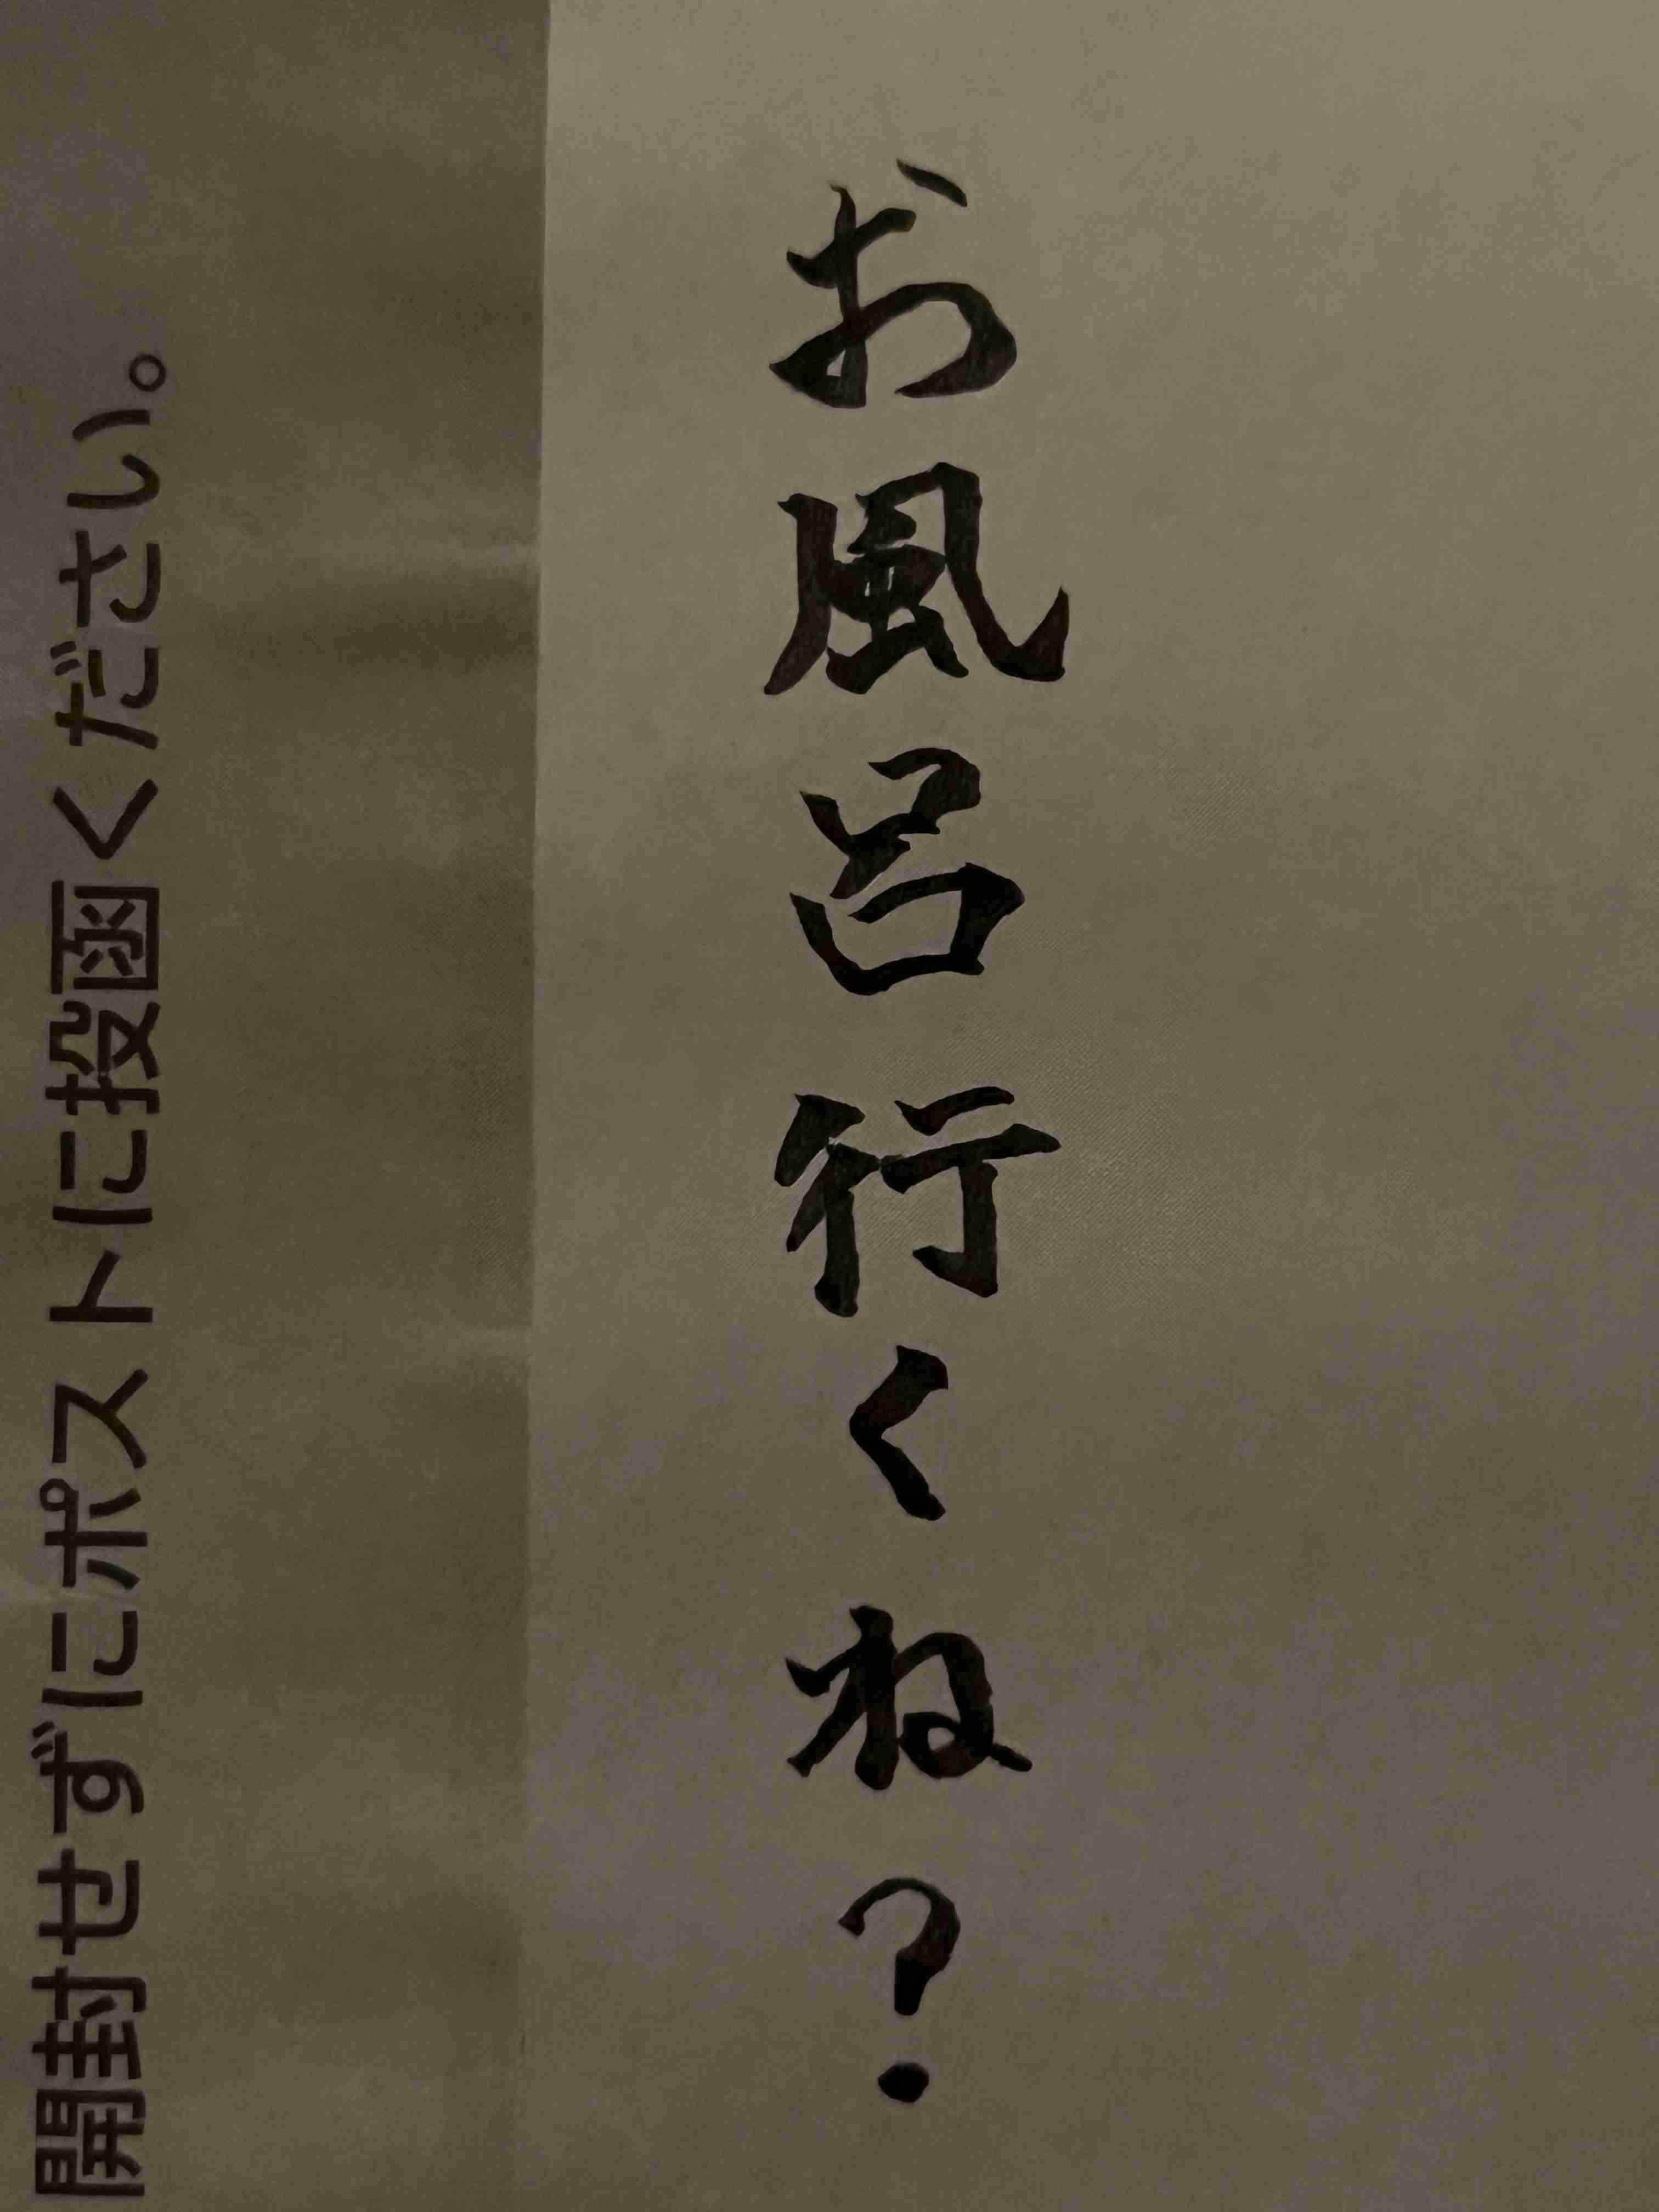 お風呂行くね?
開封せずにポストに投函ください。